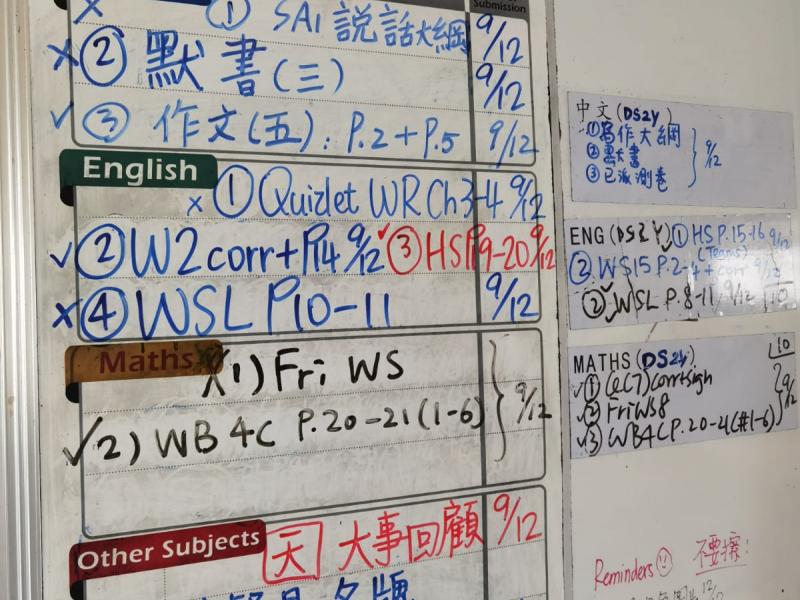 Submission
× ① SA1 説話大綱 9/12
× ② 默書(三) 9/12
✓ ③ 作文(五): P.2+P.5 9/12
English
× ① Quizlet WR Ch3-4 9/12
✓ ② W2 corr+P14 9/12 ✓ ③ HS P19-20 9/12
× ④ WSL P10-11 9/12
Maths
1) Fri WS
✓ 2) WB 4C P.20-21(1-6) } 9/12
Other Subjects
天 大事回顧 9/12
中文(DS2Y)
① 寫作大綱
② 默書 } 9/12
③ 已派測卷
ENG (DS2Y) ① HS P.15-16 9/12
(Teams)
② WS15 P.2-4+corr 9/12
② ✓ WSL P.8-11 9/12 10
MATHS (DS2Y) 10
✓ ① Q(7) corr+sign
✓ ② Fri WS8 } 9/12
✓ ③ WB4C P.20-21(#1-6)
Reminders 不要擦!
12/12